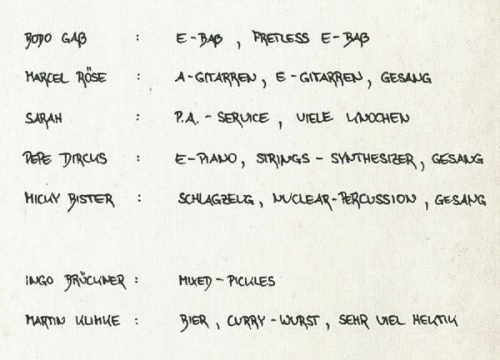 BODO GAß : E-BAß, FRETLESS E-BAß
MARCEL RÖSE : A-GITARREN, E-GITARREN, GESANG
SARAH : P.A.-SERVICE, VIELE KNOCHEN
PEPE DIRCKS : E-PIANO, STRINGS-SYNTHESIZER, GESANG
MICKY BISTER : SCHLAGZEUG, NUCLEAR-PERCUSSION, GESANG
INGO BRÜCKNER : MIXED-PICKLES
MARTIN KLIMKE : BIER, CURRY-WURST, SEHR VIEL HEKTIK